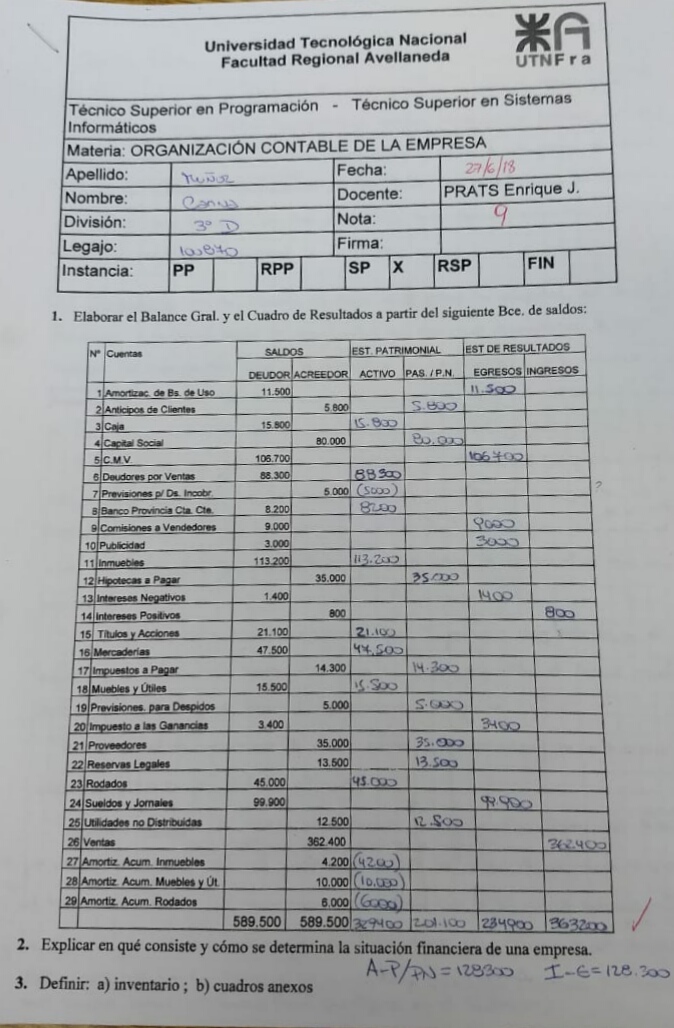 Universidad Tecnológica Nacional
Facultad Regional Avellaneda
UTNFra
Técnico Superior en Programación - Técnico Superior en Sistemas
Informáticos
Materia: ORGANIZACIÓN CONTABLE DE LA EMPRESA
Apellido: Muñoz Fecha: 27/6/18
Nombre: Docente: PRATS Enrique J.
División: 3º D Nota: 9
Legajo: 100870 Firma:
Instancia: PP RPP SP X RSP FIN
1. Elaborar el Balance Gral. y el Cuadro de Resultados a partir del siguiente Bce. de saldos:
Nº Cuentas SALDOS EST. PATRIMONIAL EST DE RESULTADOS
DEUDOR ACREEDOR ACTIVO PAS. / P.N. EGRESOS INGRESOS
1 Amortizac. de Bs. de Uso 11.500 11.500
2 Anticipos de Clientes 5.800 5.800
3 Caja 15.800 15.800
4 Capital Social 80.000 80.000
5 C.M.V. 106.700 106700
6 Deudores por Ventas 88.300 88300
7 Previsiones p/ Ds. Incobr. 5.000 (5000)
8 Banco Provincia Cta. Cte. 8.200 8200
9 Comisiones a Vendedores 9.000 9000
10 Publicidad 3.000 3000
11 Inmuebles 113.200 113.200
12 Hipotecas a Pagar 35.000 35.000
13 Intereses Negativos 1.400 1400
14 Intereses Positivos 800 800
15 Títulos y Acciones 21.100 21.100
16 Mercaderías 47.500 47.500
17 Impuestos a Pagar 14.300 14.300
18 Muebles y Útiles 15.500 15.500
19 Previsiones. para Despidos 5.000 5.000
20 Impuesto a las Ganancias 3.400 3400
21 Proveedores 35.000 35.000
22 Reservas Legales 13.500 13.500
23 Rodados 45.000 45.000
24 Sueldos y Jornales 99.900 99.900
25 Utilidades no Distribuidas 12.500 12.500
26 Ventas 362.400 362400
27 Amortiz. Acum. Inmuebles 4.200 (4200)
28 Amortiz. Acum. Muebles y Út. 10.000 (10.000)
29 Amortiz. Acum. Rodados 6.000 (6000)
589.500 589.500 329400 201.100 234900 363200
2. Explicar en qué consiste y cómo se determina la situación financiera de una empresa.
A-P/PN = 128300 I-E = 128.300
3. Definir: a) inventario ; b) cuadros anexos